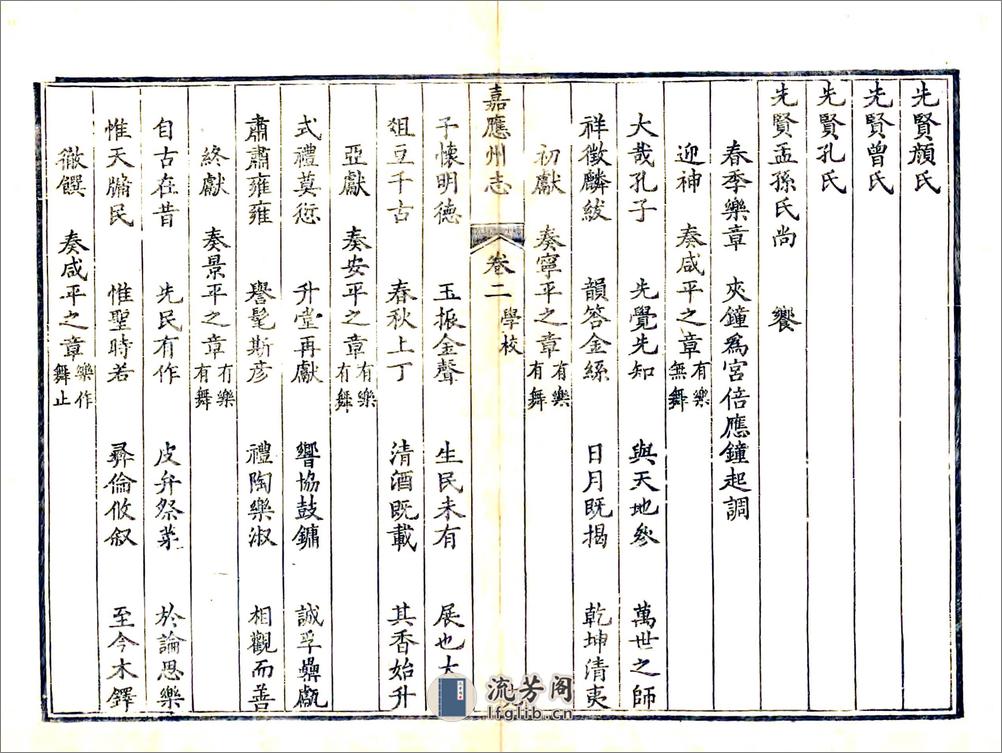 先賢顏氏
先賢曾氏
先賢孔氏
先賢孟孫氏尚　饗
春季樂章　夾鐘爲宮倍應鐘起調
迎神　奏咸平之章有樂無舞
大哉孔子　先覺先知　與天地參　萬世之師
祥徵麟紱　韻答金絲　日月既揭　乾坤清夷
初獻　奏寧平之章有樂有舞
嘉應州志　卷二　學校
予懷明德　玉振金聲　生民未有　展也大
俎豆千古　春秋上丁　清酒既載　其香始升
亞獻　奏安平之章有樂有舞
式禮莫愆　升堂再獻　響協鼓鏞　誠孚罍甗
肅肅雍雍　譽髦斯彦　禮陶樂淑　相觀而善
終獻　奏景平之章有樂有舞
自古在昔　先民有作　皮弁祭菜　於論思樂
惟天牖民　惟聖時若　彛倫攸叙　至今木鐸
徹饌　奏咸平之章樂作舞止
流芳阁
lfglib.cn